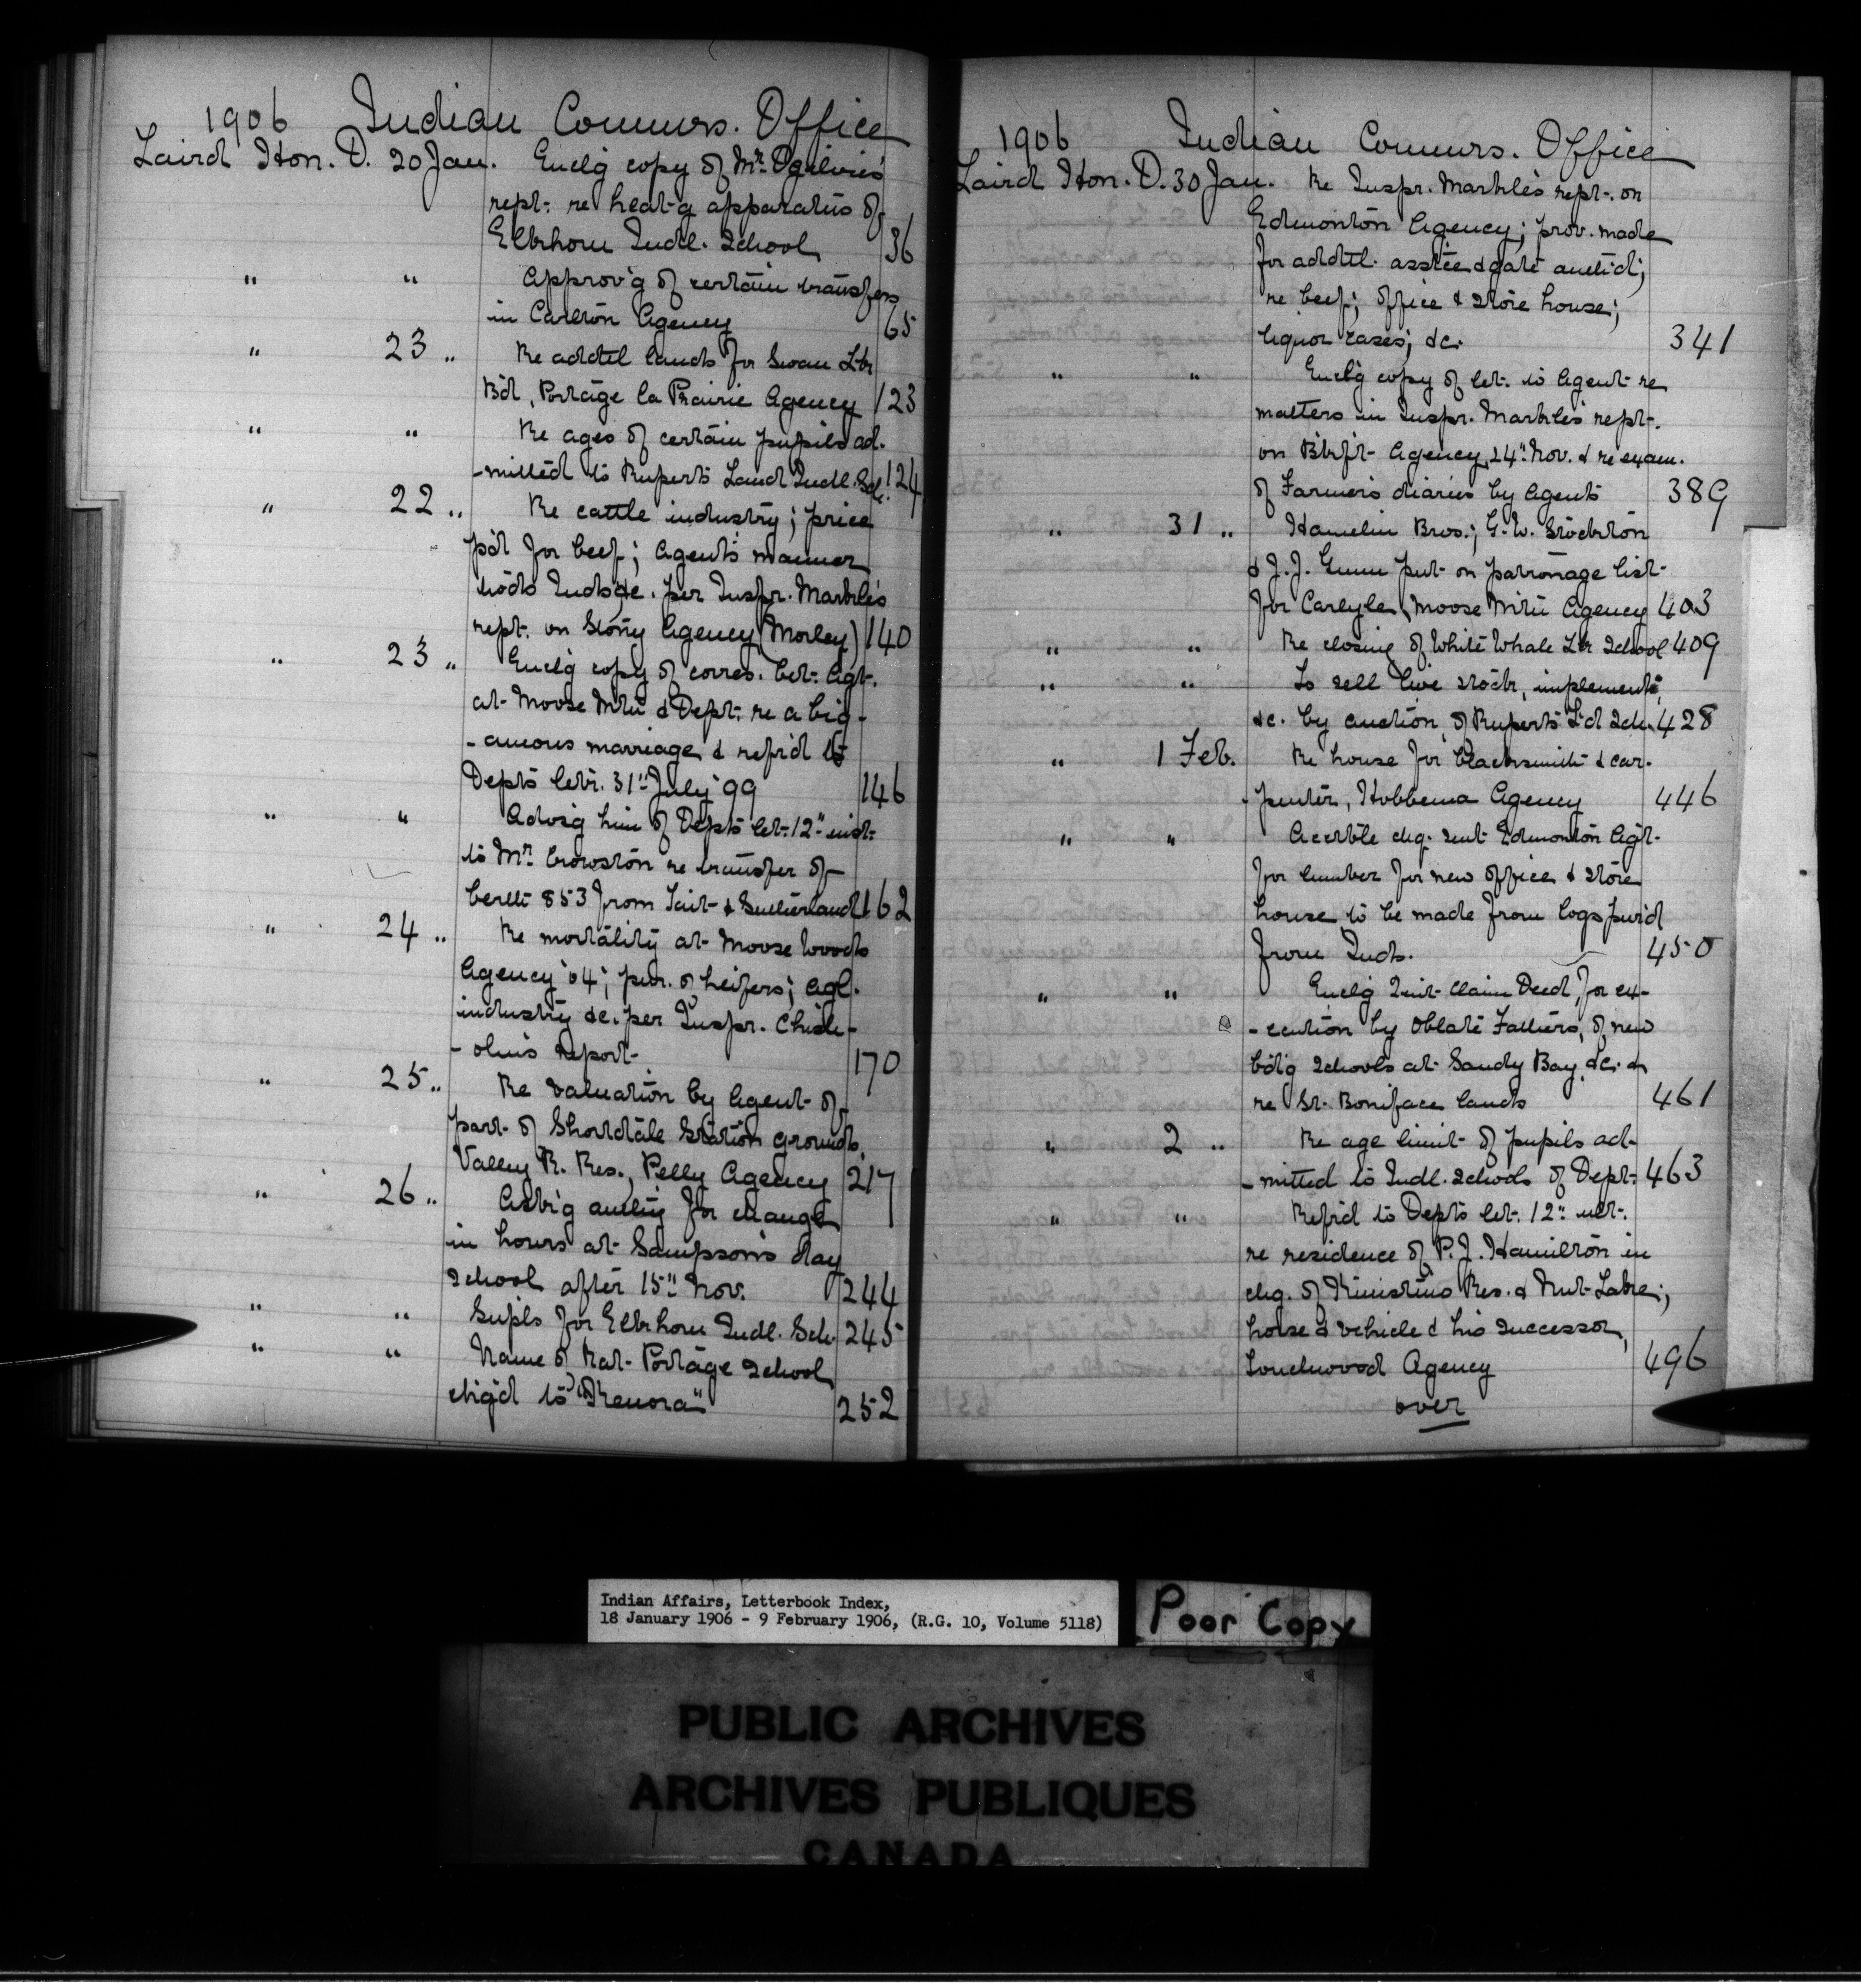 1906 Indian Commrs. Office
Laird Hon. D. 20 Jan. Enclg copy of Mr. Ogilvie's
rept. re heat-g apparatus of
Elkhorn Indl. School 36
" " Approv'g of certain transfers
in Carlton Agency 65
" 23 " Re addtl lands for Swan Lk
Bd, Portage la Prairie Agency 123
" " Re ages of certain pupils ad-
-mitted to Ruperts Land Indl. Sch. 124
" 22 " Re cattle industry; price
p'd for beef; Agents manner
tow'ds Inds &c. per Inspr. Markle's
rept. on Stony Agency (Morley) 140
" 23 " Enclg copy of corres. bet. Agt.
at Moose Mtn & Dept. re a big-
-amous marriage & refrd to
Depts letr. 31" July '99 146
" " Advsg him of Depts let. 12" inst.
to Mr. Crowston re transfer of
berth 853 from Tait & Sutherland 162
" 24 " Re mortality at Moose Woods
Agency '04; pur. of heifers; agl.
industry &c. per Inspr. Chish-
-olm's report 170
" 25 " Re valuation by Agent of
part of Shortdale Station grounds,
Valley R. Res., Pelly Agency 217
" 26 " Ask'g authy for change
in hours at Sampson's day
school after 15" Nov. 244
" " Supls for Elkhorn Indl. Sch. 245
" " Name of Rat Portage School
chg'd to "Kenora" 252
1906 Indian Commrs. Office
Laird Hon. D. 30 Jan. Re Inspr. Markle's rept. on
Edmonton Agency; prov. made
for addtl. assttce & gate authd;
re beef; office & store house;
liquor cases; &c. 341
" " Enclg copy of let. to Agent re
matters in Inspr. Markle's rept.
on Blkft Agency, 24" Nov. & re exam.
of Farmer's diaries by Agents 389
" 31 " Hamelin Bros.; G. W. Stockton
& J. J. Gunn put on patronage list
for Carlyle, Moose Mtn Agency 403
" " Re closing of White Whale Lk School 409
" " To sell live stock, implements,
&c. by auction, of Ruperts L'd Sch. 428
" 1 Feb. Re house for blacksmith & car-
-penter, Hobbema Agency 446
" " Accble chq. sent Edmonton Agt.
for lumber for new office & store
house to be made from logs pur'd
from Inds. 450
" " Enclg Quit Claim Deed, for ex-
-ecution by Oblate Fathers, of new
bdg schools at Sandy Bay, &c. &
re St. Boniface lands 461
" 2 " Re age limit of pupils ad-
-mitted to Indl. Schools of Dept. 463
" " Refrd to Depts let. 12" ult.
re residence of P. J. Hamilton in
chg. of Kinistino Res. & Nut Lake;
horse & vehicle & his successor,
Touchwood Agency 496
over
Indian Affairs, Letterbook Index,
18 January 1906 - 9 February 1906, (R.G. 10, Volume 5118)
Poor Copy
PUBLIC ARCHIVES
ARCHIVES PUBLIQUES
CANADA